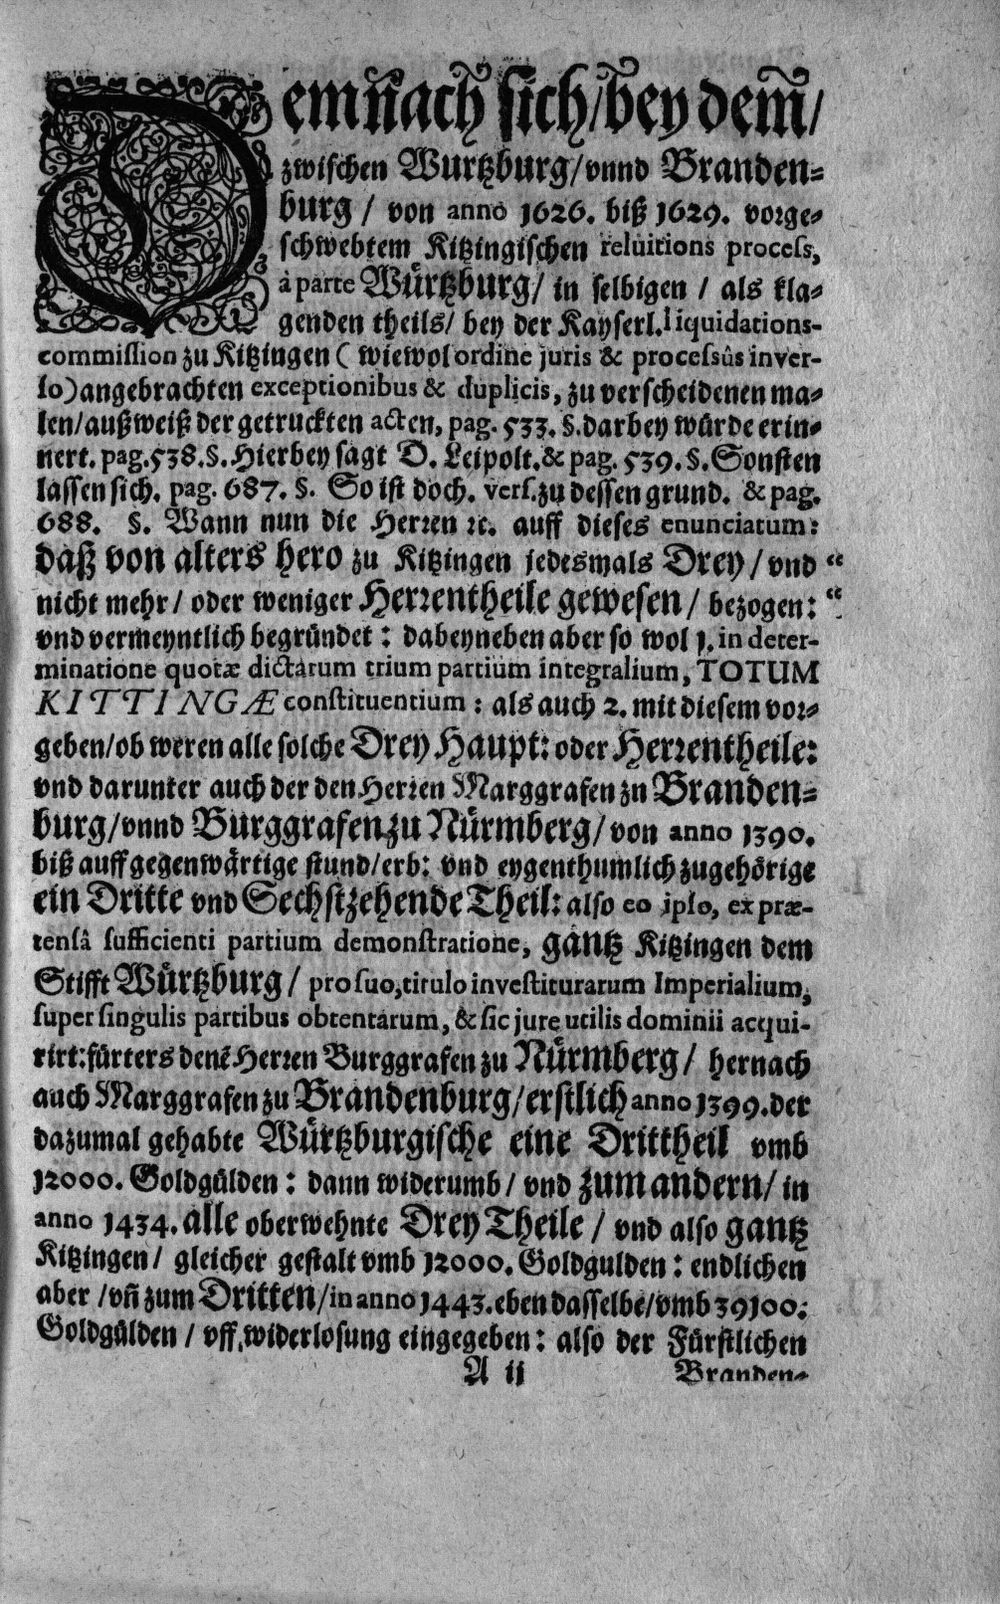 Demñach sich/bey dem̃/
zwischen Wurtzburg/vnnd Branden-
burg / von anno 1626. biß 1629. vorge-
schwebtem Kitzingischen reluitions process,
à parte Würtzburg/ in selbigen / als kla-
genden theils/ bey der Kayserl. liquidations-
commission zu Kitzingen ( wiewol ordine juris & processûs inver-
so) angebrachten exceptionibus & duplicis, zu verscheidenen ma-
len/außweiß der getruckten acten, pag. 533. §. darbey würde erin-
nert. pag. 538. §. Hierbey sagt D. Leipolt. & pag. 539. §. Sonsten
lassen sich. pag. 687. §. So ist doch. vers. zu dessen grund. & pag.
688. §. Wann nun die Herren ꝛc. auff dieses enunciatum:
daß von alters hero zu Kitzingen jedesmals Drey / vnd “
nicht mehr / oder weniger Herrentheile gewesen / bezogen: “
vnd vermeyntlich begründet : dabeyneben aber so wol 1. in deter-
minatione quotæ dictarum trium partium integralium, TOTUM
KITTINGÆ constituentium : als auch 2. mit diesem vor-
geben/ob weren alle solche Drey Haupt: oder Herrentheile:
vnd darunter auch der den Herren Marggrafen zu Branden-
burg/vnnd Burggrafen zu Nürmberg/von anno 1390.
biß auff gegenwärtige stund/erb: vnd eygenthumlich zugehörige
ein Dritte vnd Sechstzehende Theil: also eo ipso, ex præ-
tensâ sufficienti partium demonstratione, gantz Kitzingen dem
Stifft Würtzburg / pro suo, titulo investiturarum Imperialium,
super singulis partibus obtentarum, & sic jure utilis dominii acqui-
rirt: fürters denẽ Herren Burggrafen zu Nürmberg/ hernach
auch Marggrafen zu Brandenburg/erstlich anno 1399. der
dazumal gehabte Würtzburgische eine Drittheil vmb
12000. Goldgülden : dann widerumb / vnd zum andern/ in
anno 1434. alle oberwehnte Drey Theile / vnd also gantz
Kitzingen / gleicher gestalt vmb 12000. Goldgulden : endlichen
aber /vñ zum Dritten/in anno 1443. eben dasselbe/vmb 39100.
Goldgülden / vff widerlosung eingegeben : also der Fürstlichen
A ij Branden-